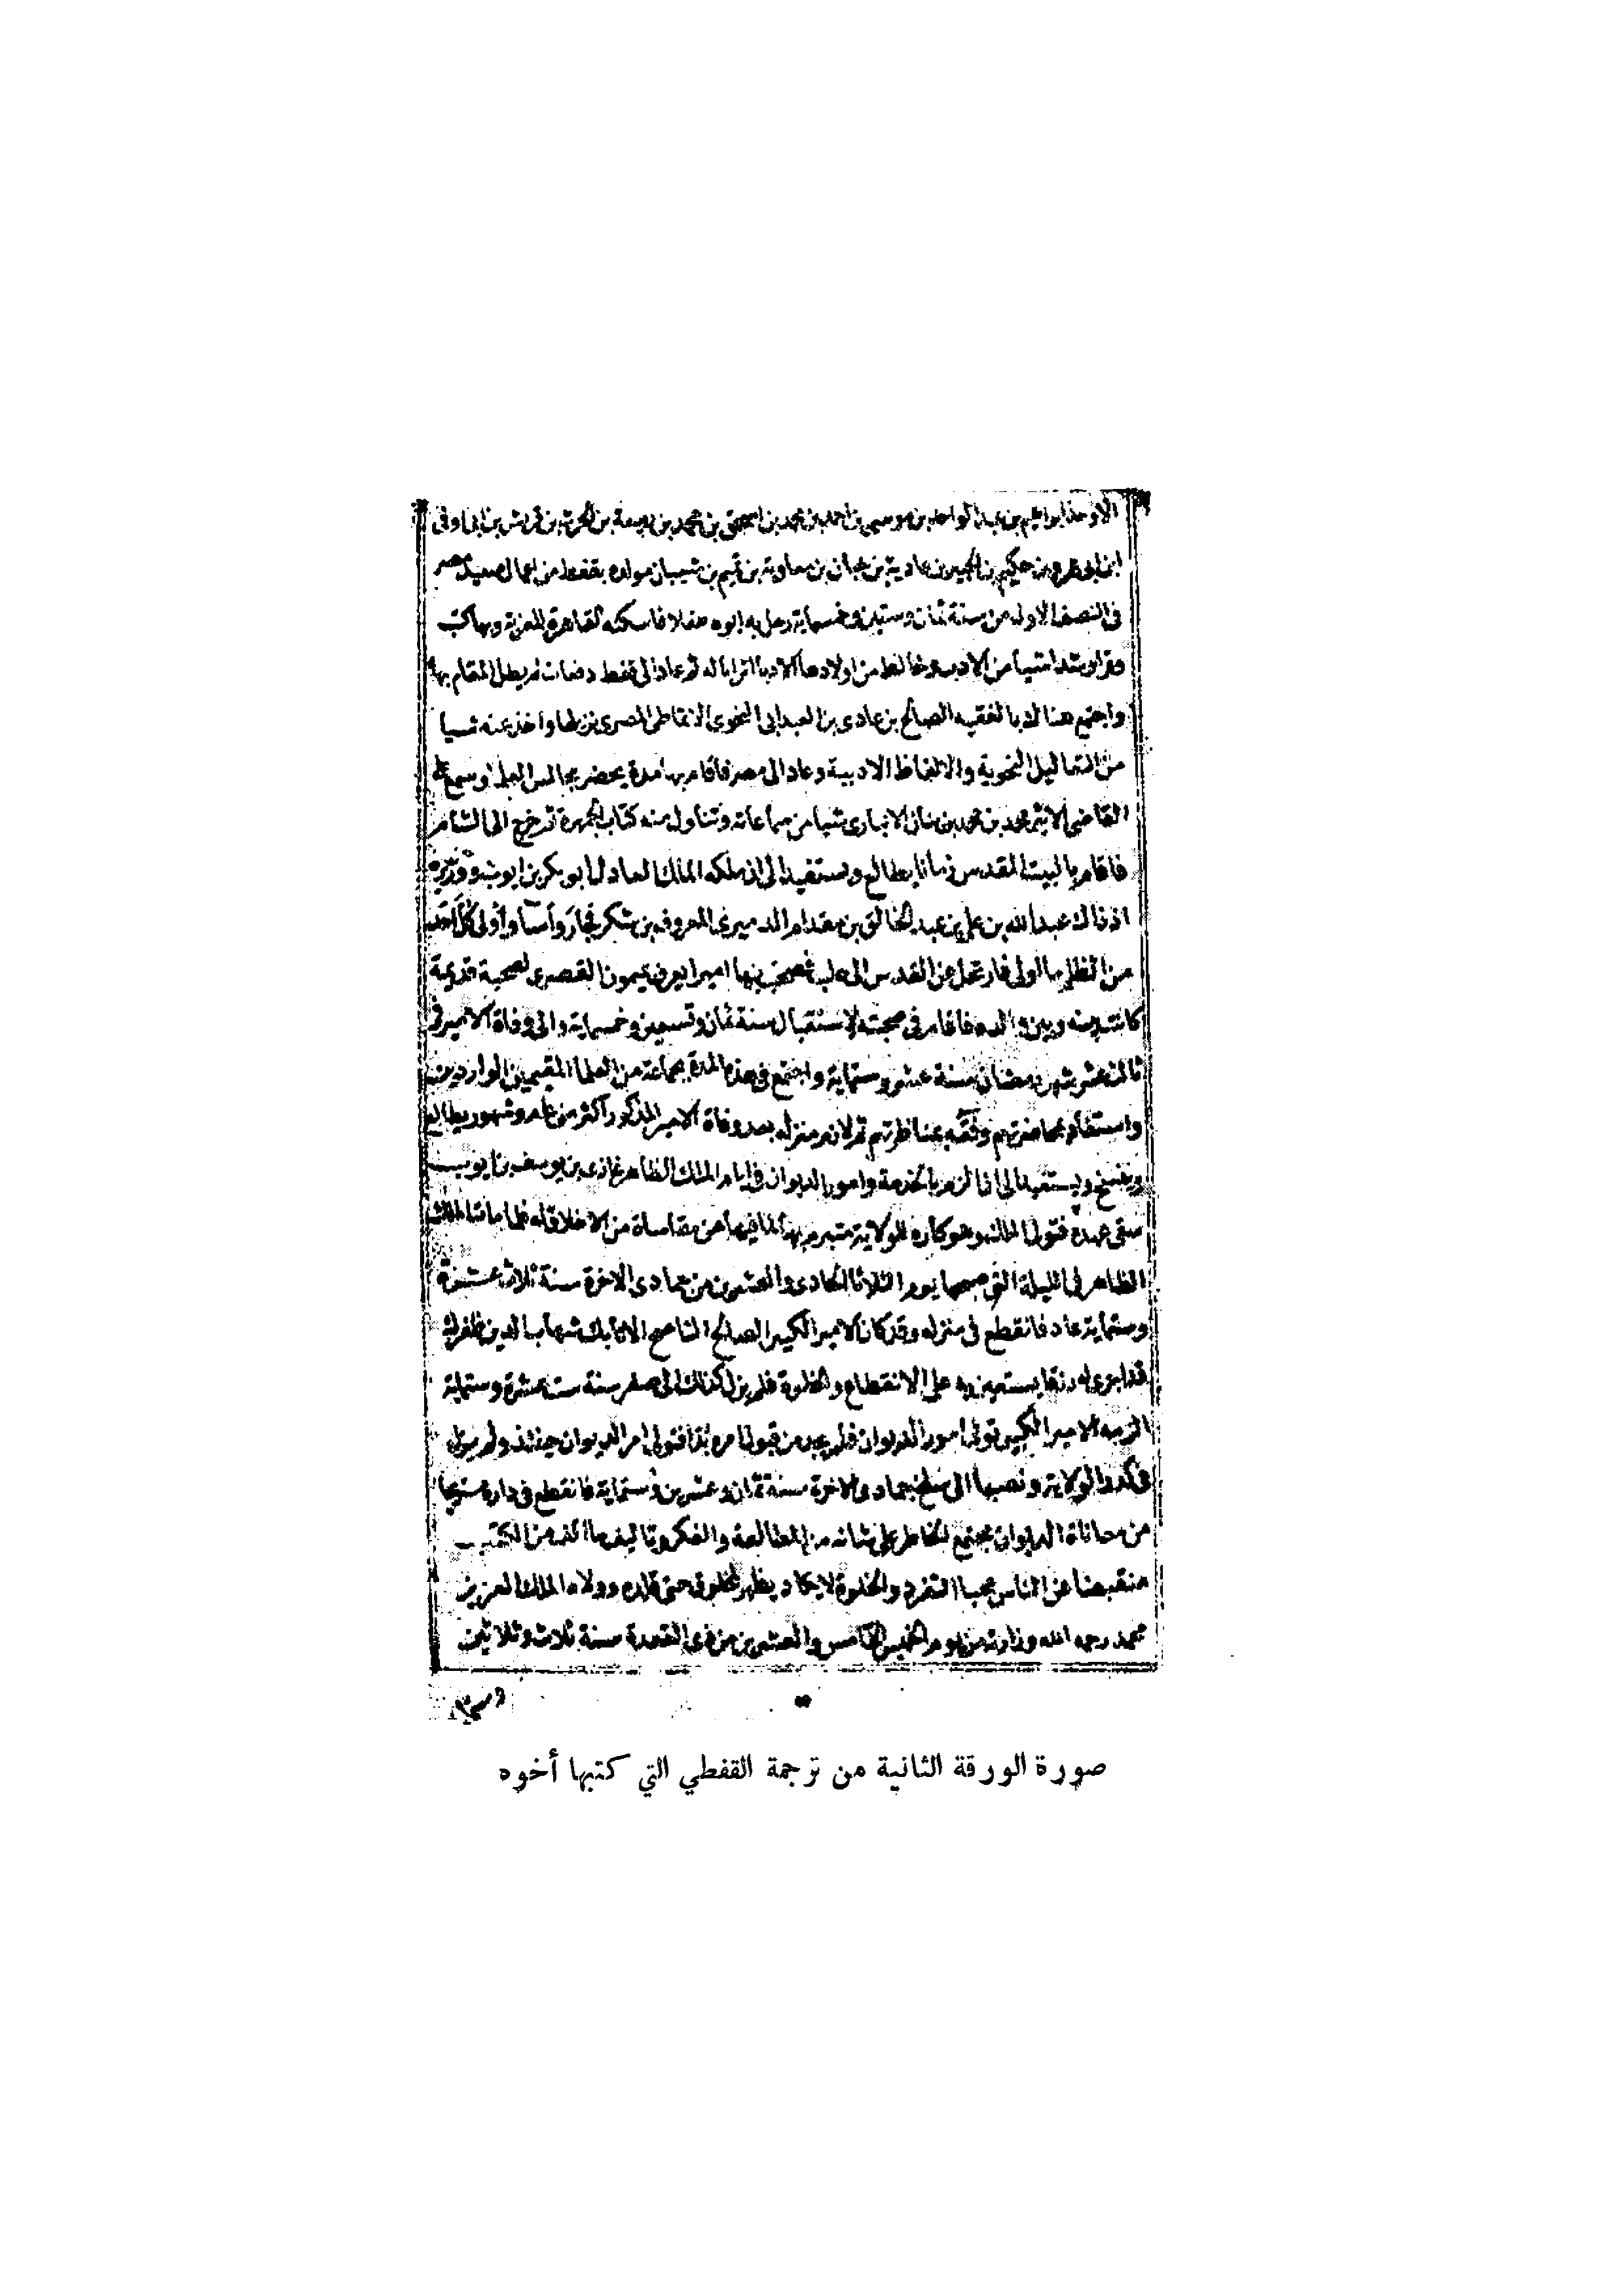 ابراهيم بن عبد الواحد بن موسى بن احمد بن محمد بن اسحق بن محمد بن ربيعة بن الحرث بن قريش بن ابي اوفى
ابن ابي عمرو بن حكيم بن عادية بن حبان بن معاوية بن تيم بن شيبان مولده بقفط من اعمال صعيد مصر
في النصف الاول من سنة ثمان وستين وخمسماية رحل به ابوه طفلا فاسكنه القاهرة المعزية وبها كتب
وقرا وشدا شيا من الادب وخالط من اولادها الادبا اترابا له ثم عاد الى قفط لم يطل المقام بها
واجتمع هناك بالفقيه الصالح بن عادى بن النحوي الانماطي المصري نزيلها واخذ عنه شيا
من التعاليل النحوية والالفاظ الادبية وعاد الى مصر فاقام بها مدة يحضر مجالس العلما وسمع على
القاضي الاثير محمد بن محمد بن بنان الانبارى شيا من سماعاته وتناول منه كتاب الجمهرة ثم خرج الى الشام
فاقام بالبيت المقدس زمانا يطالع ويستفيد الى ان ملكه الملك العادل ابو بكر بن ايوب ووزيره
اذ ذاك عبد الله بن علي بن عبد الخالق بن مقدام الدميري المعروف بن شكر فجار واسا واولى كل احد
من الظلم ما اولى فارتحل عن القدس الى حلب فصحب بها اميرا يعرف بميمون القصرى لصحبة قديمة
كانت بينه وبين والده فاقام في صحبته لاستقبال سنة ثمان وتسعين وخمسماية والى وفاة الامير في
ثالث عشر شهر رمضان سنة عشر وستماية واجتمع في هذه المدة بجماعة من العلما المقيمين الواردين
واستفاد بمحاضرتهم وتفقه بمناظرتهم ثم لازم منزله بعد وفاة الامير المذكور اكثر من عام وشهور يطالع
وينسخ ويستفيد الى ان الزم بالخدمة وامور الديوان في ايام الملك الظاهر غازى بن يوسف بن ايوب
سقى عهده فتولى ذلك وهو كاره للولاية متبرم بها لما فيها من مقاساة من لا خلاق له فلما مات الملك
الظاهر في الليلة التي صبحها يوم الثلاثا الحادى والعشرين من جمادى الاخرة سنة ثلاث عشرة
وستماية عاد فانقطع في منزله وقد كان الامير الكبير الصالح الناصح الاتابك شهاب الدين طغرلبك
قد اجرى له رزقا يستعين به على الانقطاع والخلوة فلم يزل كذلك الى صفر سنة ست عشرة وستماية
الزمه الامير الكبير تولى امور الديوان فلم يجد من قبول امره بدا فتولى امر الديوان حينئذ ولم يزل
في كد الولاية ونصبها الى سلخ جمادى الاخرة سنة ثمان وعشرين وستماية فانقطع في داره مستريحا
من معاناة الديوان مجتمع الخاطر على شانه من المطالعة والفكر وتاليف ما الف من الكتب
منقبضا عن الناس محبا التفرد والخلوة لا يكاد يظهر لمخلوق حتى قلده وولاه الملك العزيز
محمد رحمه الله وزارته من يوم الخميس الخامس والعشرين من ذى القعدة سنة ثلاث وثلاثين
صورة الورقة الثانية من ترجمة القفطي التي كتبها أخوه